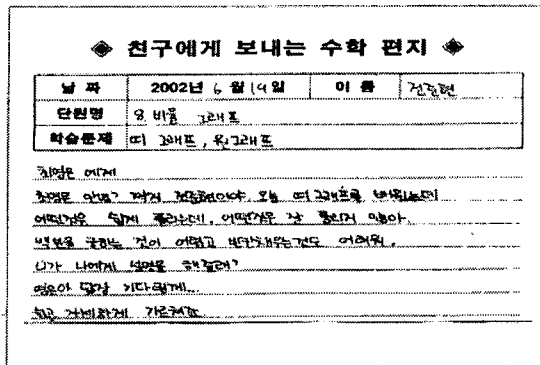 친구에게 보내는 수학 편지
날 짜 2002년 6 월 19 일 이 름 전준현
단원명 8. 비율 그래프
학습문제 띠 그래프, 원그래프
최영은 에게
최영은 안녕? 전준현이야. 오늘 띠 그래프를 배웠는데
어떤것은 쉽게 풀리는데, 어떤것은 잘 풀리지 않아.
백분율 구하는 것이 어렵고 어려워.
니가 나에게 설명을 해줄래?
영은아 답장 기다릴게...
하게 가르쳐줘